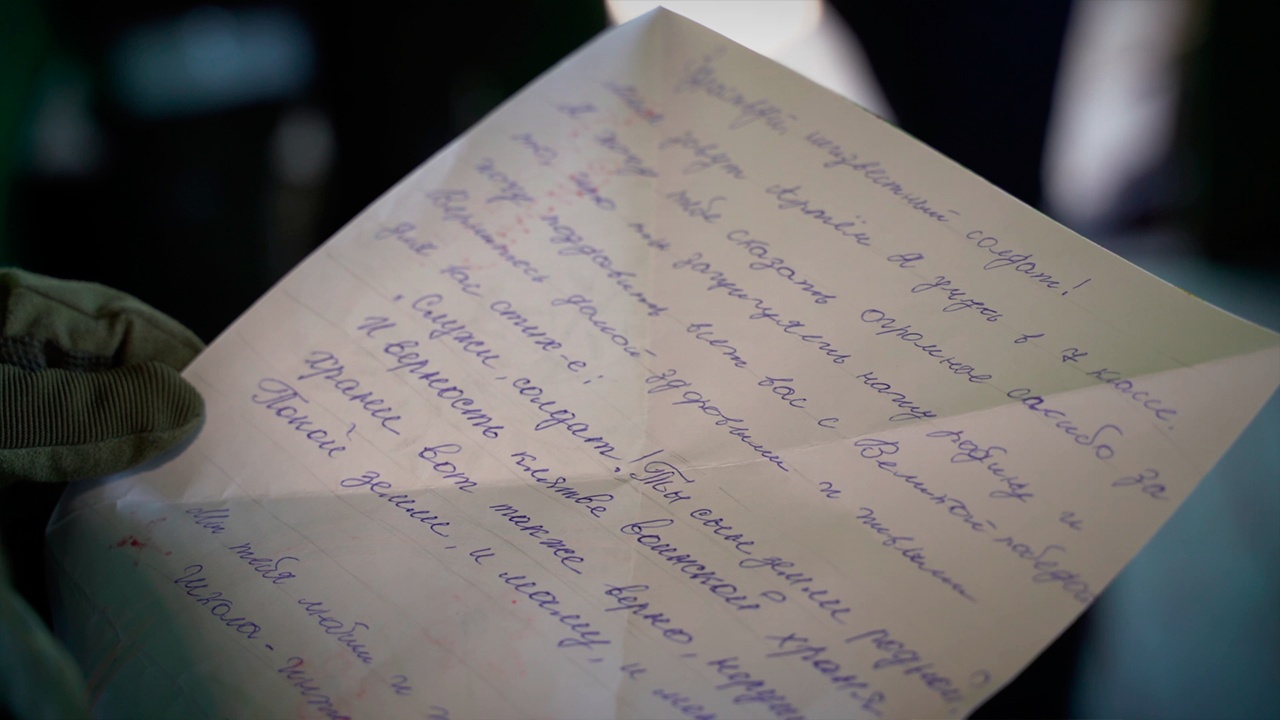 Здаствуй неизвестный солдат!
меня зовут Артём я учусь в 7 классе.
Я хочу тебе сказать огромное спасибо за
то, что ты защищаешь нашу родину и
хочу поздравить всех вас с Великой победой
Вернитесь домой здоровыми и живыми
для вас стих-е:
"Служи, солдат! Ты сын земли родной
И верность клятве воинской храня
храни вот также верно,
Покой земли, и маму, и
Мы тебя любим и
Школа-